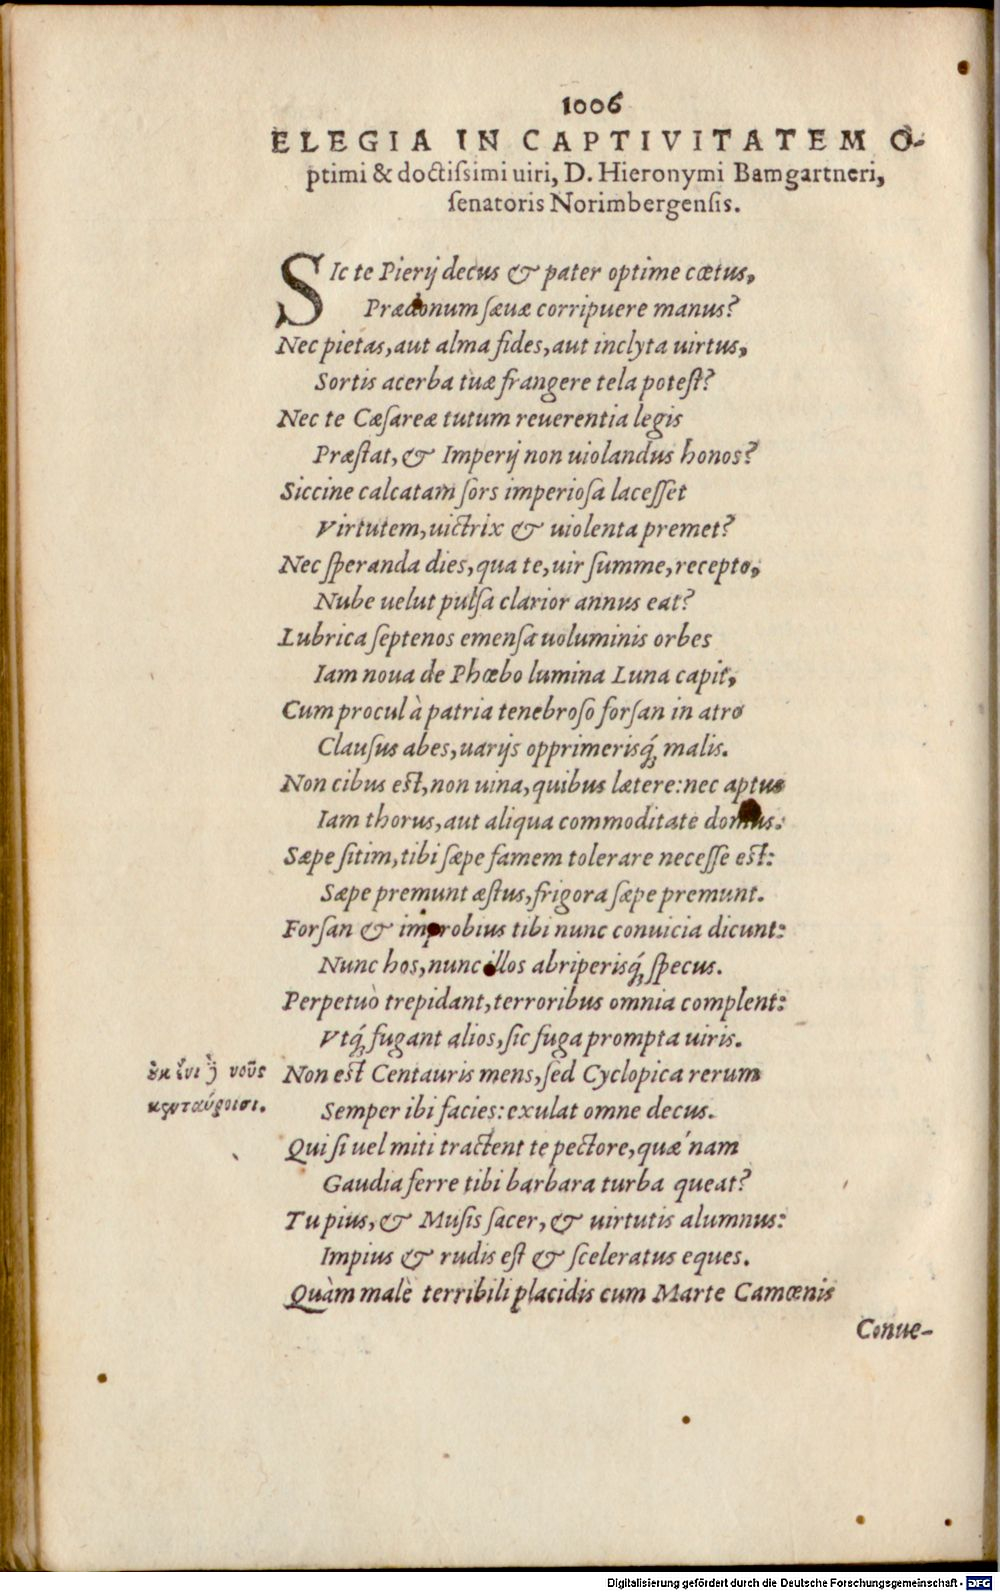 1006
ELEGIA IN CAPTIVITATEM O-
ptimi & doctiſsimi uiri, D. Hieronymi Bamgartneri,
ſenatoris Norimbergenſis.
SIc te Pierij decus & pater optime cœtus,
Prædonum ſæuæ corripuere manus?
Nec pietas, aut alma fides, aut inclyta uirtus,
Sortis acerba tuæ frangere tela poteſt?
Nec te Cæſareæ tutum reuerentia legis
Præſtat, & Imperij non uiolandus honos?
Siccine calcatam ſors imperioſa laceſſet
Virtutem, uictrix & uiolenta premet?
Nec ſperanda dies, qua te, uir ſumme, recepto,
Nube uelut pulſa clarior annus eat?
Lubrica ſeptenos emenſa uoluminis orbes
Iam noua de Phœbo lumina Luna capit,
Cum procul à patria tenebroſo forſan in atro
Clauſus abes, uarijs opprimerisq́; malis.
Non cibus eſt, non uina, quibus lætere: nec aptus
Iam thorus, aut aliqua commoditate domus:
Sæpe ſitim, tibi ſæpe famem tolerare neceſſe eſt:
Sæpe premunt æſtus, frigora ſæpe premunt.
Forſan & improbius tibi nunc conuicia dicunt:
Nunc hos, nunc illos abriperisq́; ſpecus.
Perpetuò trepidant, terroribus omnia complent:
Vtq́; fugant alios, ſic fuga prompta uiris.
Non eſt Centauris mens, ſed Cyclopica rerum
Semper ibi facies: exulat omne decus.
οὐκ ἔνι νοῦς
κενταύροισι.
Qui ſi uel miti tractent te pectore, quæ nam
Gaudia ferre tibi barbara turba queat?
Tu pius, & Muſis ſacer, & uirtutis alumnus:
Impius & rudis eſt & ſceleratus eques.
Quàm malè terribili placidis cum Marte Camœnis
Conue-
Digitalisierung gefördert durch die Deutsche Forschungsgemeinschaft - DFG